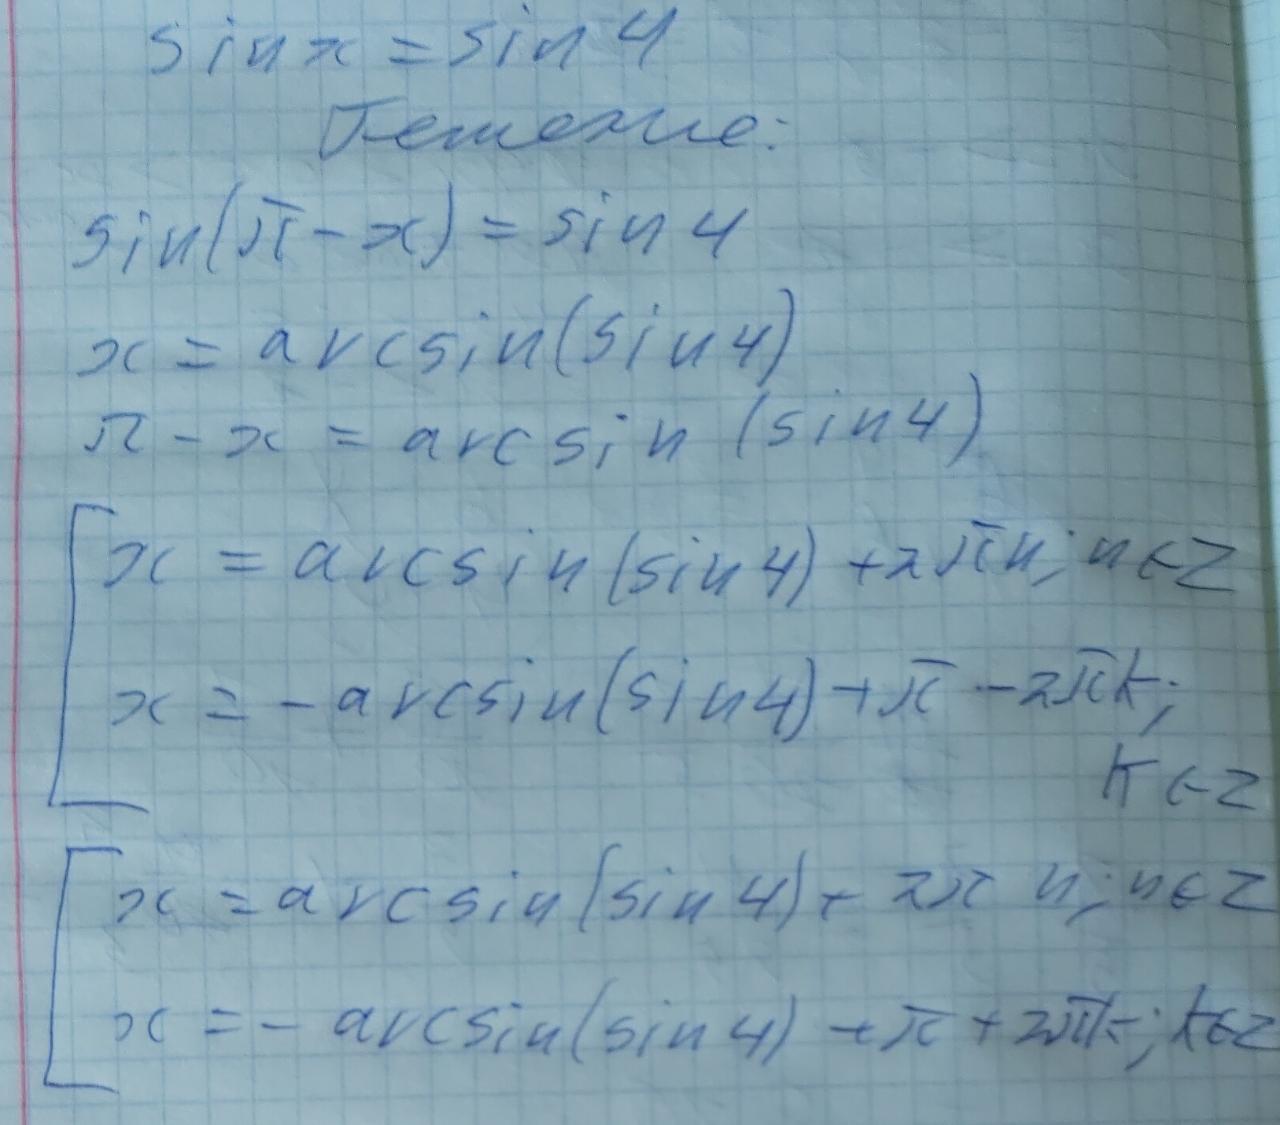 sin x = sin 4
Решение:
sin(π - x) = sin 4
x = arcsin(sin 4)
π - x = arcsin (sin 4)
x = arcsin(sin 4) + 2πn; n ∈ Z
x = - arcsin(sin 4) + π - 2πk;
k ∈ Z
x = arcsin(sin 4) + 2π n; n ∈ Z
x = - arcsin(sin 4) + π + 2πk; k ∈ Z